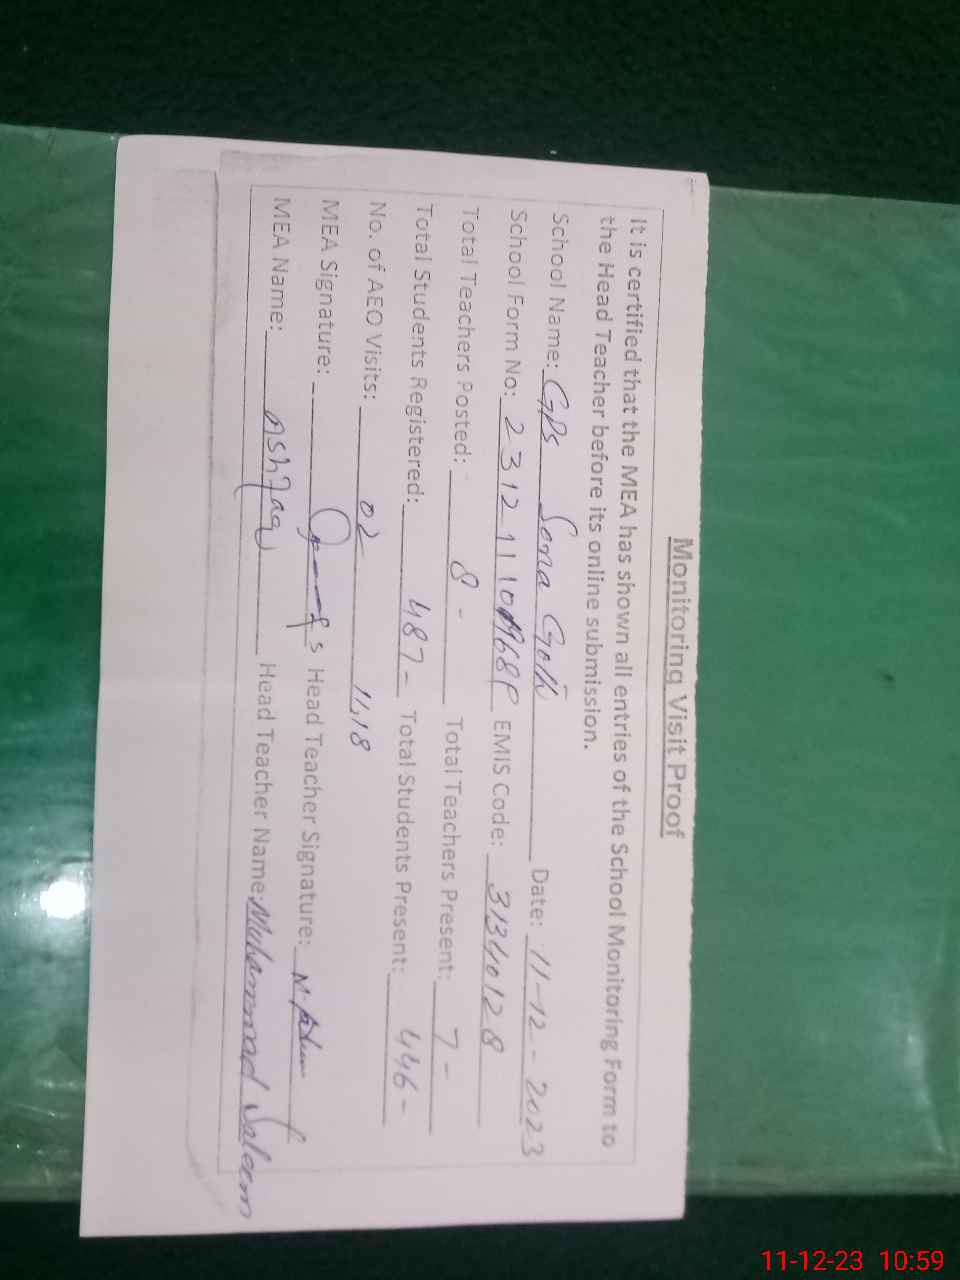 Monitoring Visit Proof
It is certified that the MEA has shown all entries of the School Monitoring Form to
the Head Teacher before its online submission.
School Name: GPS Sona Goth Date: 11-12-2023
School Form No: 23121110 68P EMIS Code: 31340128
Total Teachers Posted: 8 - Total Teachers Present: 7 -
Total Students Registered: 487 - Total Students Present: 446 -
No. of AEO Visits: 02 11,18
MEA Signature: Head Teacher Signature:
MEA Name: Ashfaq Head Teacher Name: Muhammad Saleem
11-12-23 10:59